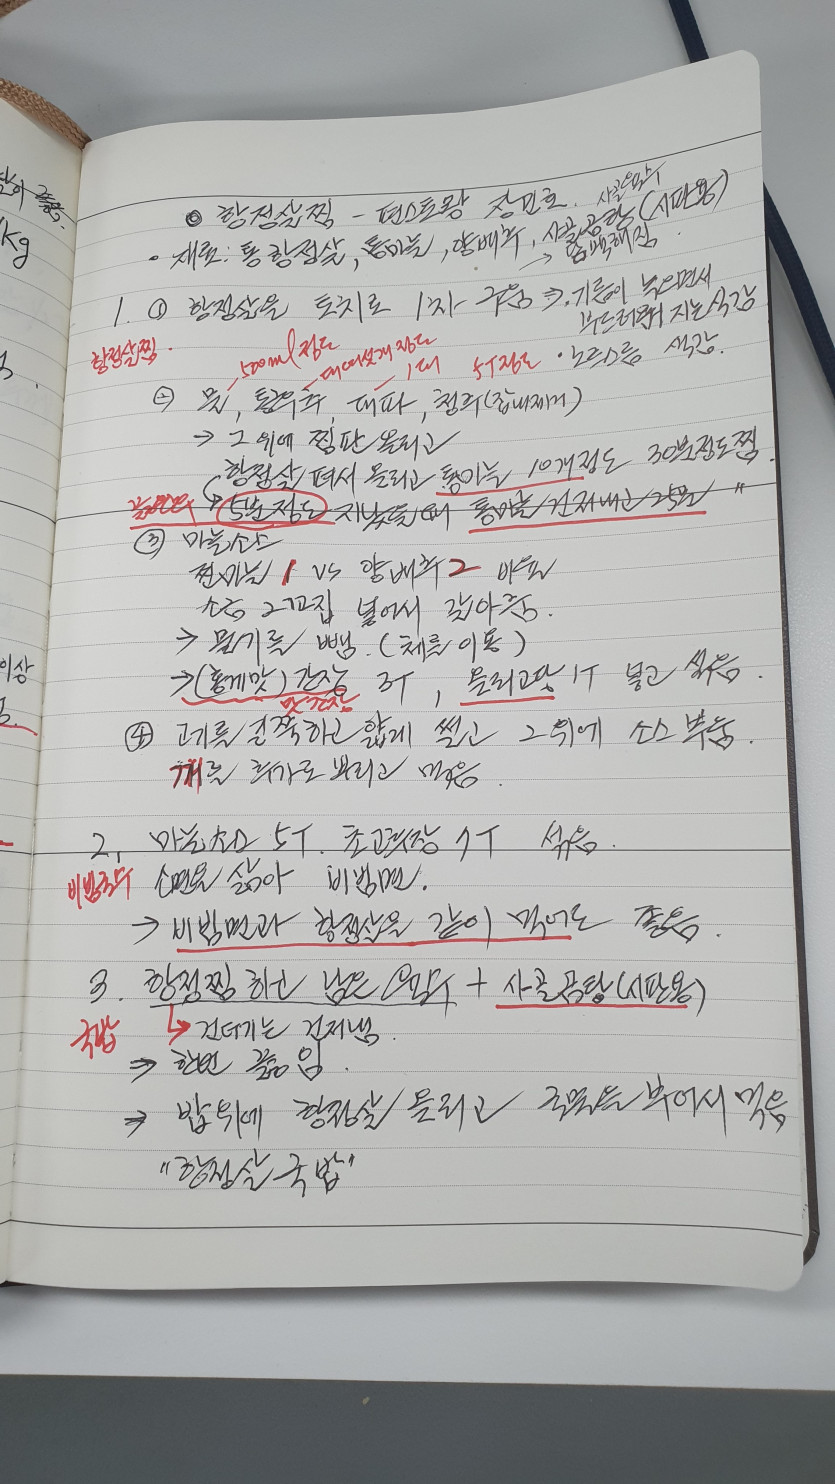 항정살찜 - 편스토랑 장민호.
• 재료: 통항정살, 통마늘, 양배추, 사골곰탕(시판용)
1. ① 항정살을 토치로 1차 구움 ⇒ • 기름이 녹으면서
부드러워지는 식감
항정살찜. 500ml정도 1대 5T정도 • 노르스름 색감.
② 물, 대파, 청주(잡내제거)
→ 그 위에 찜판 올리고
항정살 펴서 올리고 통마늘 10개정도 30분정도 찜.
5분정도 지났을 때 통마늘 건져내고 25분 "
③ 마늘소스
찐마늘 1 vs 양배추 2
소금 2꼬집 넣어서 갈아줌.
→ 물기를 뺌. (체를 이용)
→ 간장 3T, 올리고당 1T 넣고 섞음.
맛간장
④ 고기를 길쭉하고 얇게 썰고 그 위에 소스 부음.
깨를 추가로 뿌리고 먹음.
2. 마늘소스 5T. 초고추장 7T 섞음.
소면을 삶아 비빔면.
→ 비빔면과 항정살을 같이 먹어도 좋음.
3. 항정찜 하고 남은 육수 + 사골곰탕(시판용)
국밥 → 건더기는 건져냄.
⇒ 한번 끓임.
⇒ 밥 위에 항정살 올리고 국물을 부어서 먹음
"항정살 국밥"